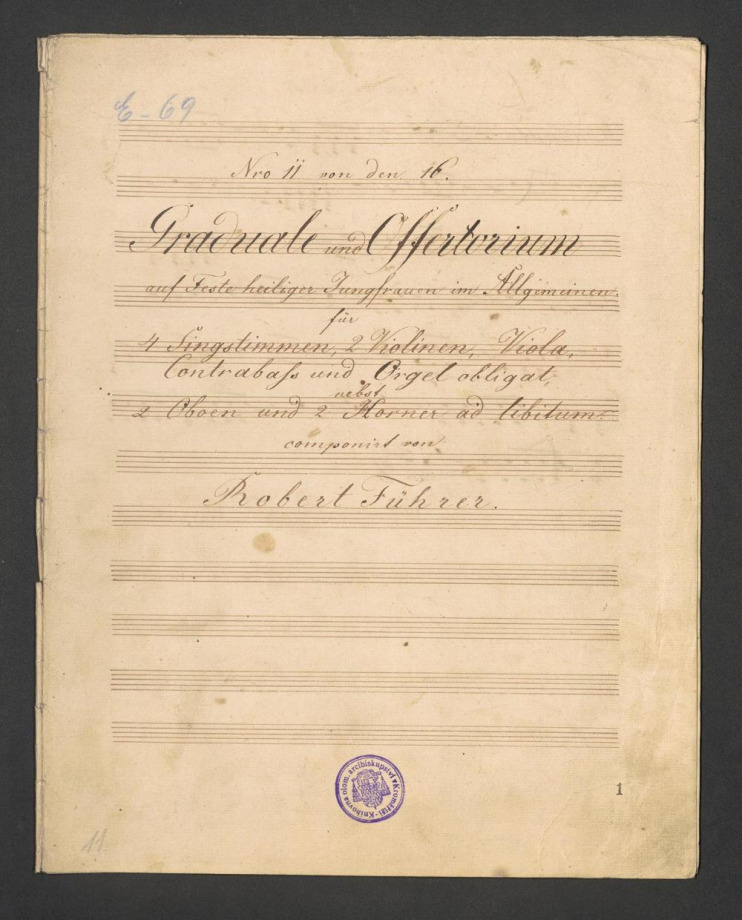 E-69
Nro 11 von den 16.
Graduale und Offertorium
auf Feste heiliger Jungfrauen im Allgemeinen.
für
4 Singstimmen, 2 Violinen, Viola,
Contrabaſs und Orgel obligat,
nebst
2 Oboen und 2 Horner ad libitum.
componirt von
Robert Führer.
Knihovna olom. arcibiskupství v Kroměříži
1
11